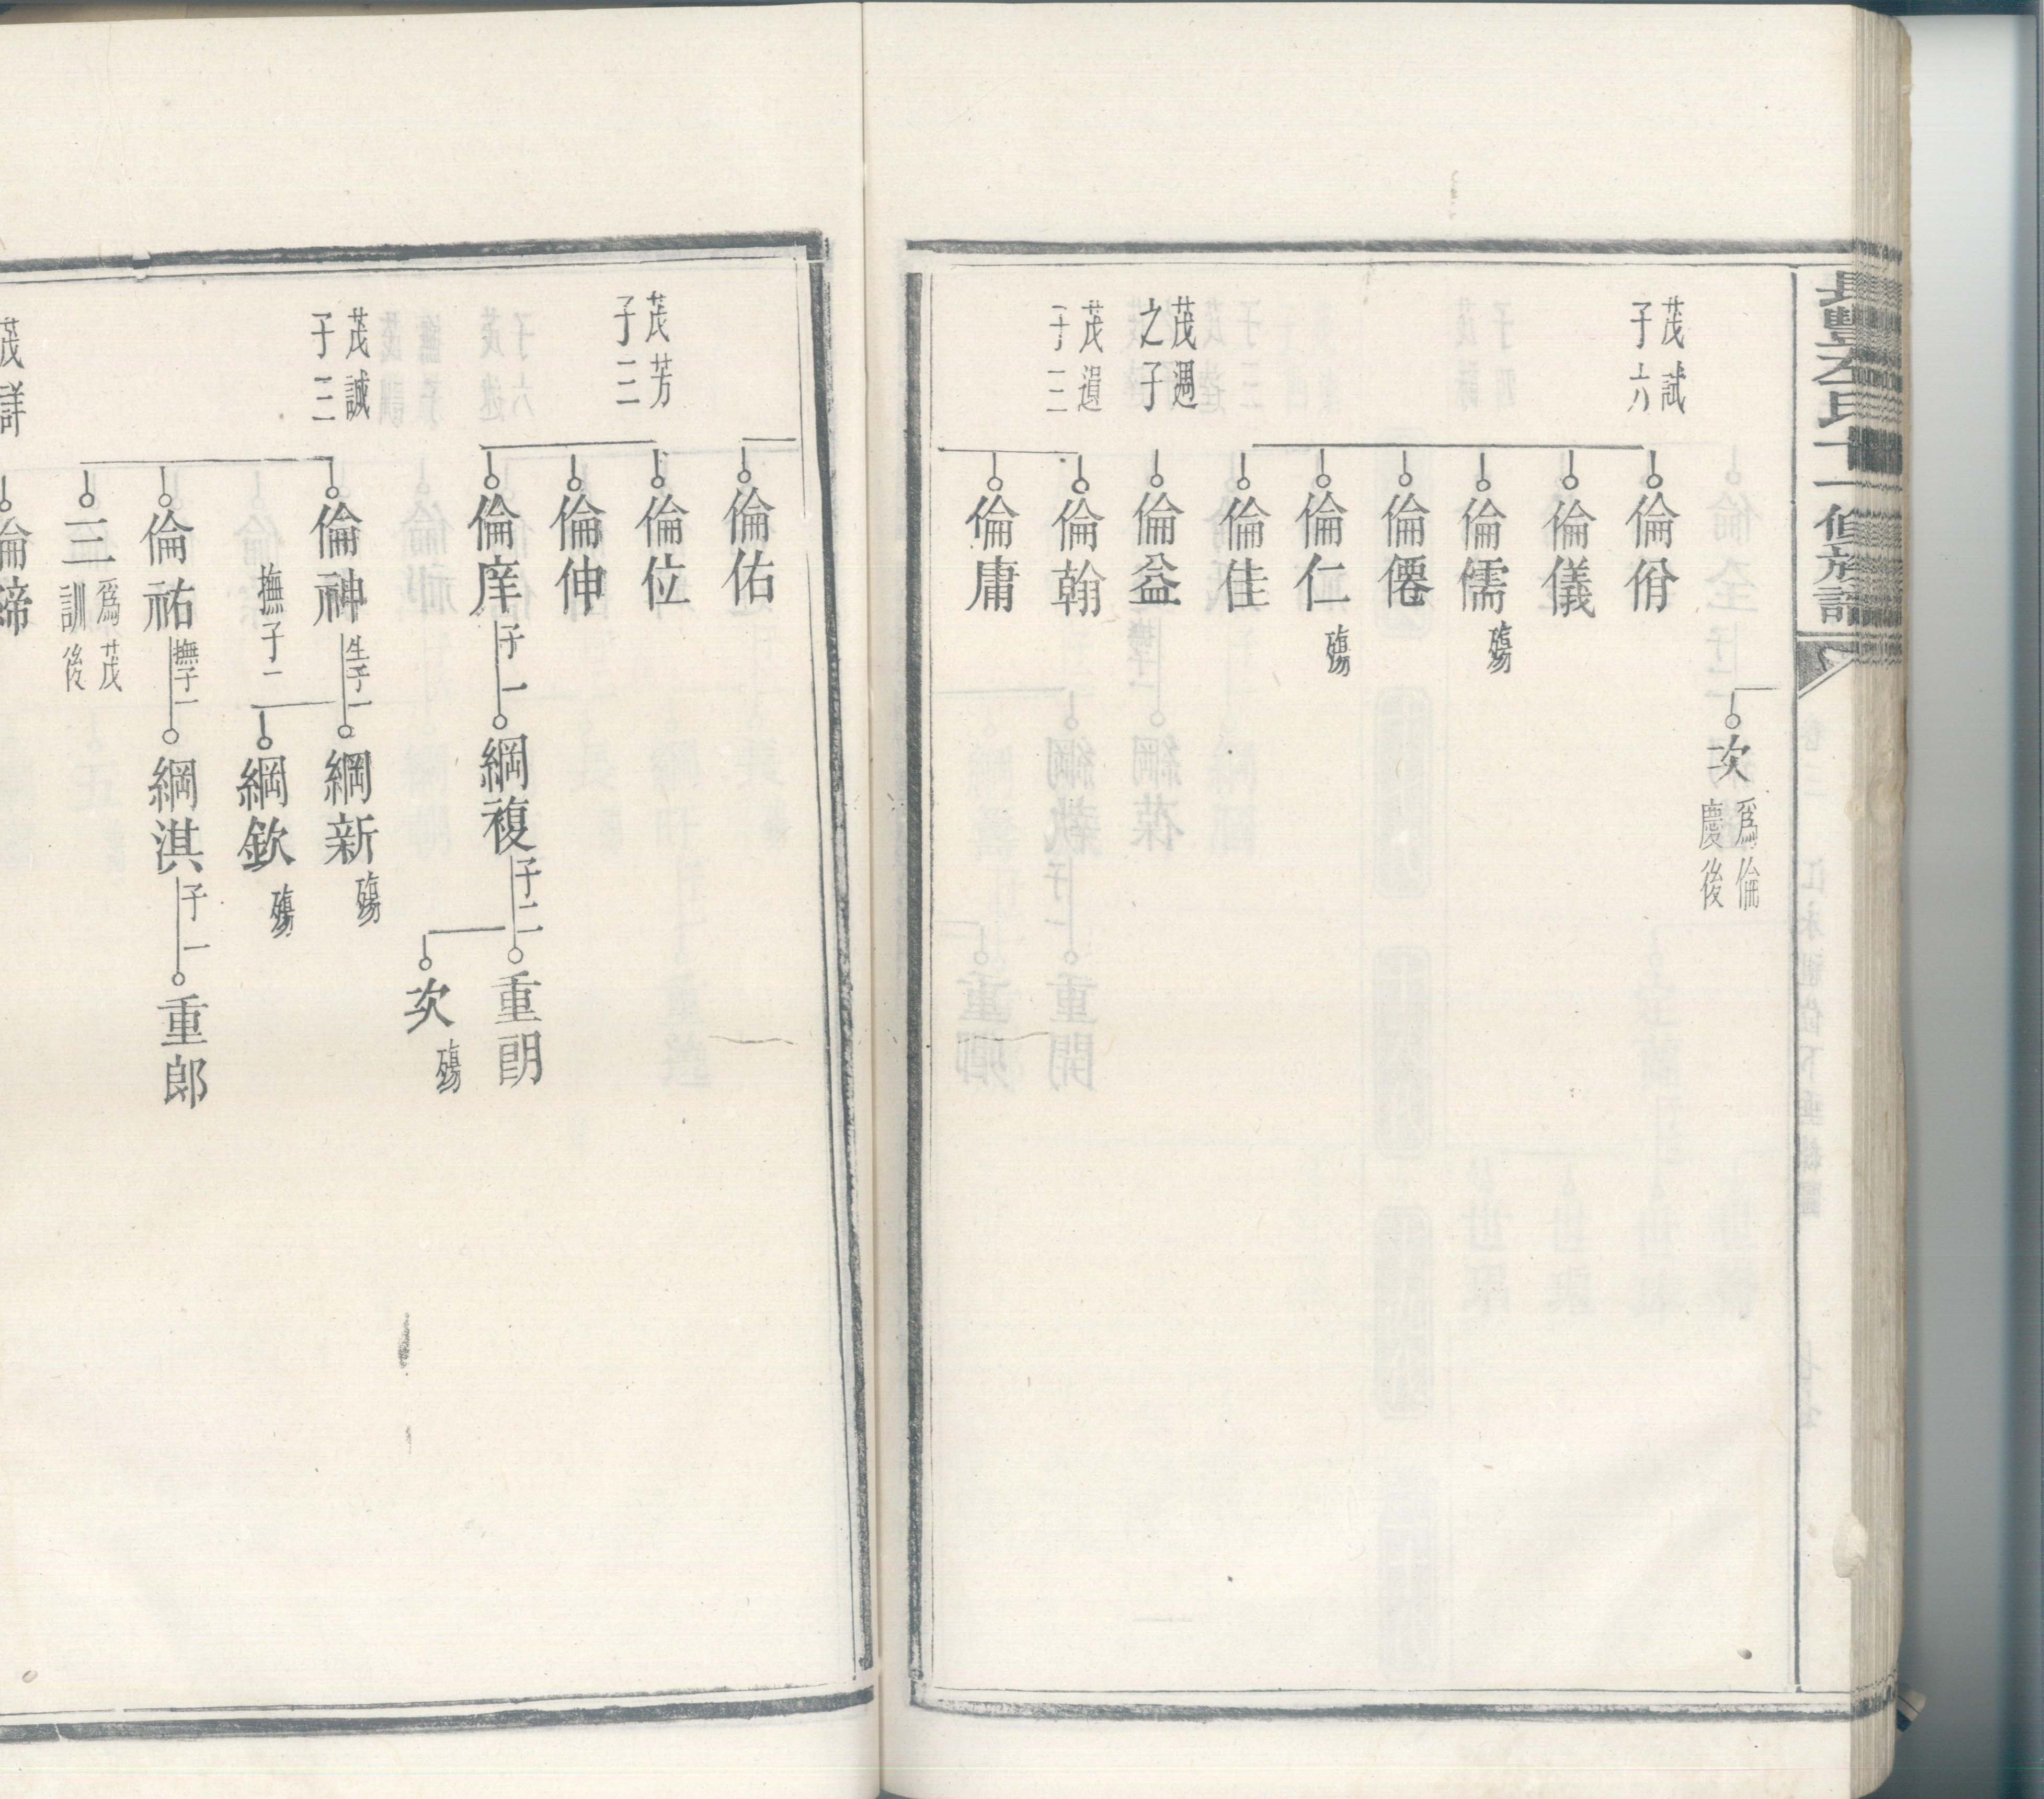 次
爲倫
慶後
茂試
子六
倫佾
倫儀
倫儒
殤
倫僊
倫仁
殤
倫佳
茂遇
之子
倫益
茂選
子三
倫翰
倫庸
倫佑
茂芳
子三
倫位
倫伸
倫庠
子一
綱複
子二
重朗
次
殤
茂誠
子三
倫神
生子一
撫子一
綱新
殤
綱欽
殤
倫祐
撫子一
綱淇
子一
重郎
三
爲茂
訓後
茂詳